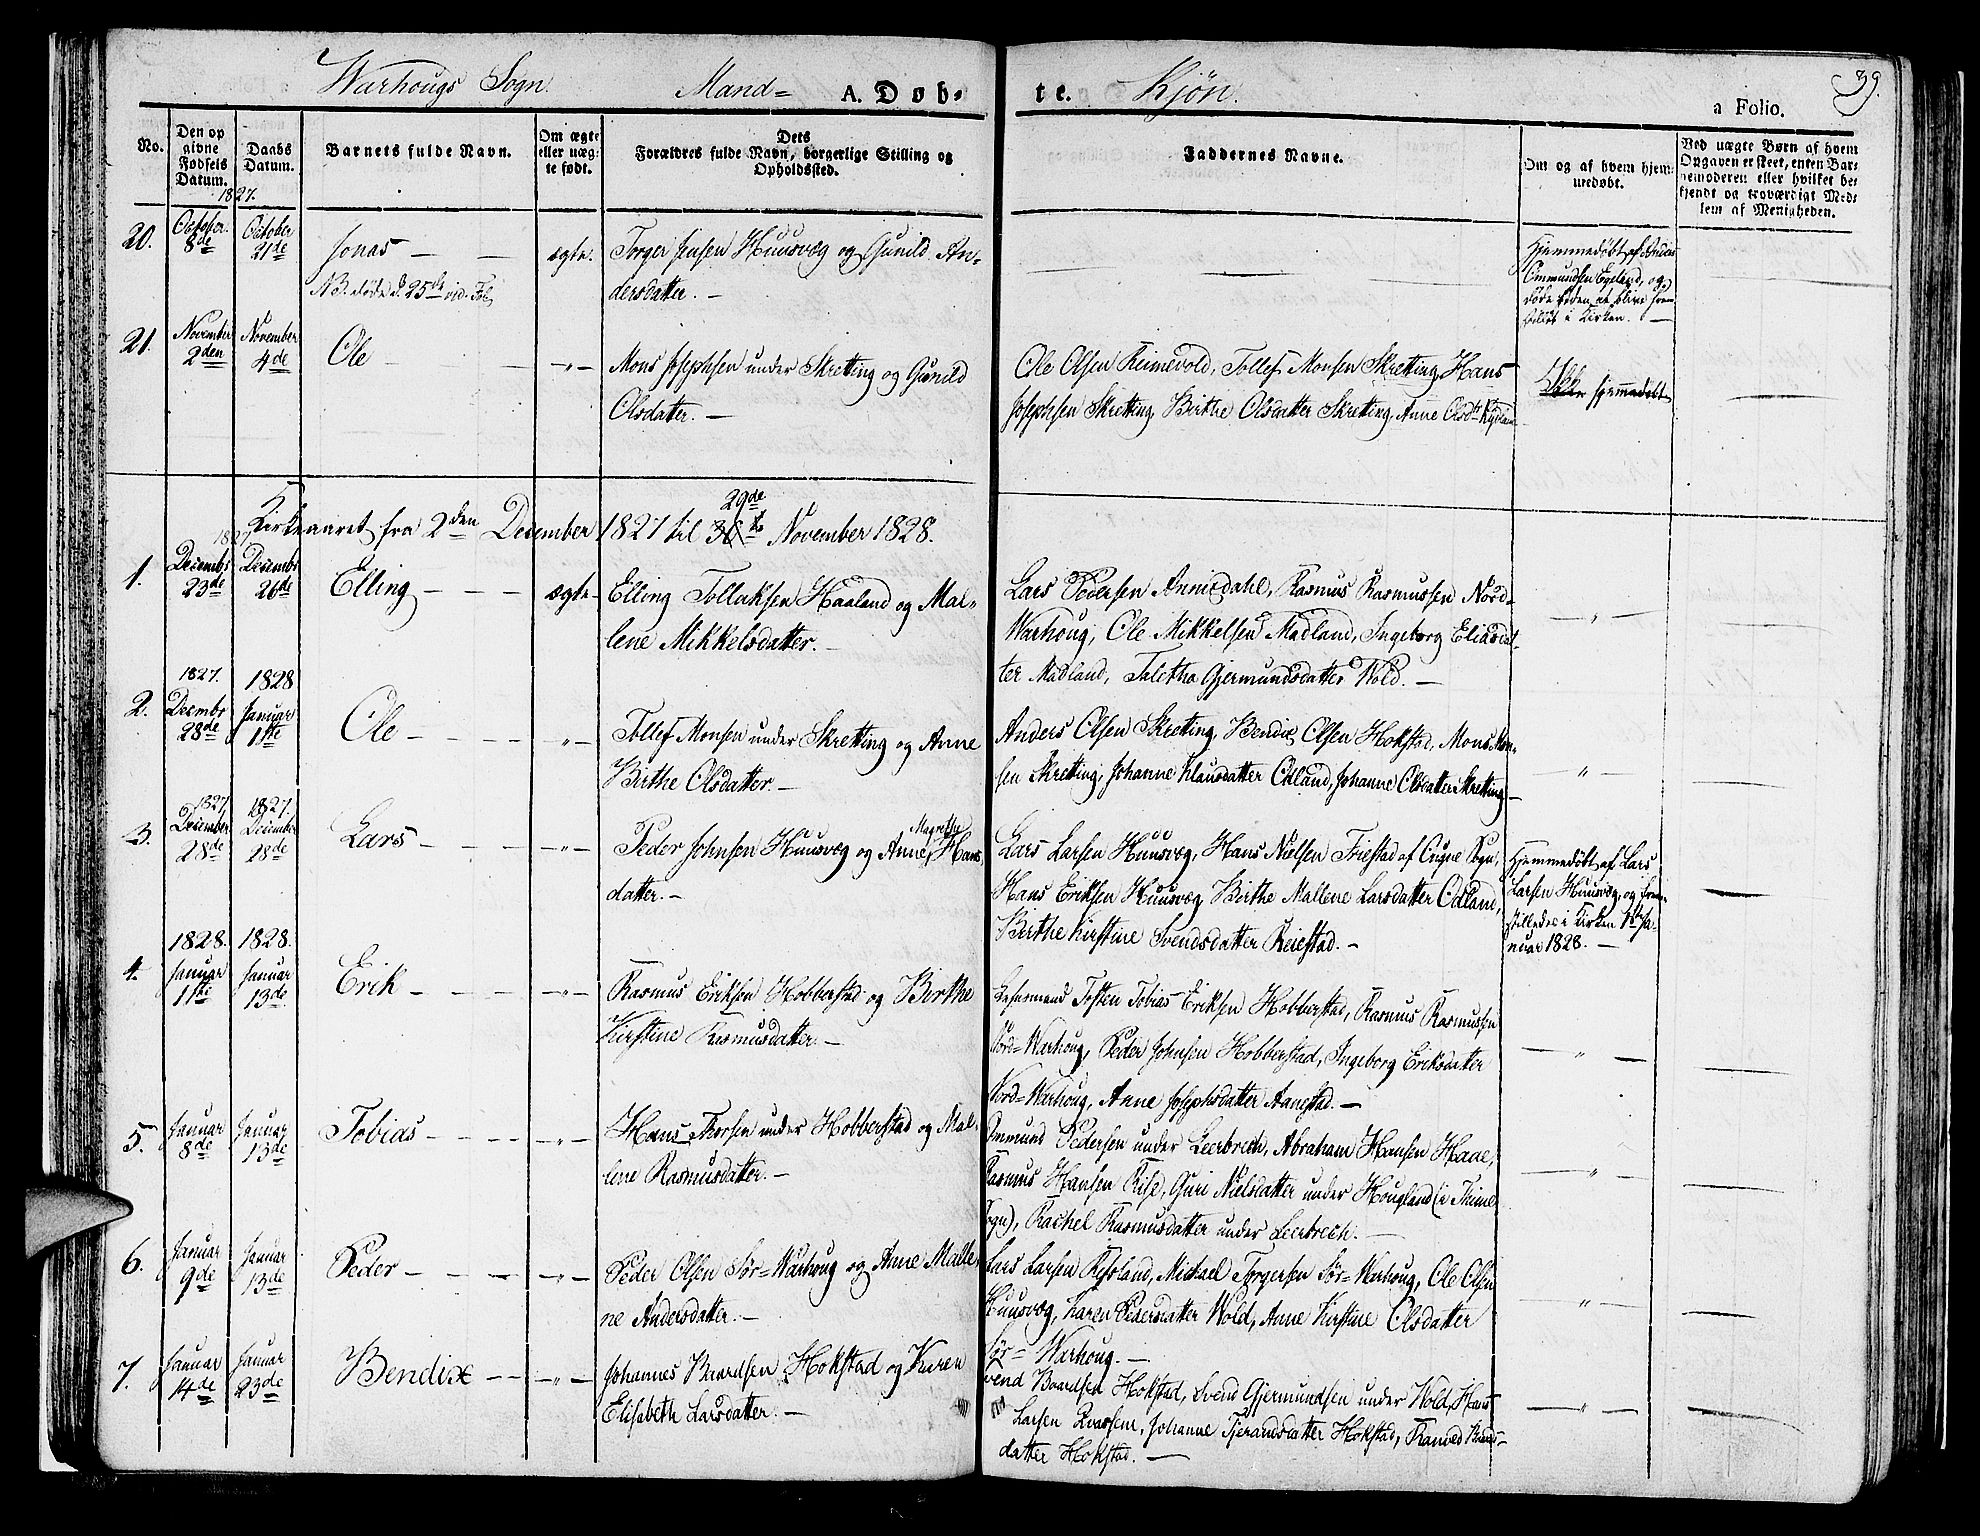 Warhougs Sogn. Mand= A. Døb- te. Kjøn. a Folio. 39.
No.
Den op
givne
Fødsels
Datum.
Daabs
Datum.
Barnets fulde Navn.
Om ægte
eller uæg-
te født.
Dets
Forældres fulde Navn, borgerlige Stilling og
Opholdssted.
Faddernes Navne.
Om og af hvem hjem-
medøbt.
Ved uægte Børn af hvem
Opgaven er skeet, enten Bar-
nemoderen eller hvilket be-
kjendt og troværdigt Med-
lem af Menigheden.
1827.
20. October 8de October 21de Jonas ægte. Torger Jensen Huusvæg og Gunild An-
dersdatter.
NB. døde d. 25de vid. Fol.
Hjemmedøbt af Anders
Ommundsen Egeland, og
døde uden at blive frem-
stillet i Kirken.
21. November 2den November 4de Ole -"- Mons Josephsen under Skretting og Gunild
Olsdatter.
Ole Olsen Reimevold, Tollef Monsen Skretting, Hans
Josephsen Skretting, Birthe Olsdatter Skretting, Anne Olsdtr
Ikke hjemmedøbt
Kirkeaaret fra 2den December 1827 til 30te 29de November 1828.
1827
1. Decembr 23de Decembr 26de Elling ægte Elling Tollaksen Haaland og Mal-
lene Mikkelsdatter.
Lars Pedersen Anniedahl, Rasmus Rasmussen Nord-
Warhoug, Ole Mikkelsen Madland, Ingeborg Eliasdat-
ter Madland, Taletha Gjermundsdatter Wold.
-"-
2. 1827. Decembr 28de 1828 Januar 1ste Ole -"- Tollef Monsen under Skretting og Anne
Birthe Olsdatter.
Anders Olsen Skretting, Bendix Olsen Hokstad, Mons Mon-
sen Skretting, Johanne Klausdatter Odland, Johanne Olsdatter Skretting
-"-
3. 1827. December 28de 1827. December 28de Lars -"- Peder Johnsen Huusvæg og Anne Magrethe Hans-
datter.
Lars Larsen Huusvæg, Hans Nielsen Friestad af Ougne Sogn,
Hans Eriksen Huusvæg, Birthe Mallene Larsdatter Odland,
Birthe Kirstine Svendsdatter Reiestad.
Hjemmedøbt af Lars
Larsen Huusvæg, og frem-
stilledes i Kirken 1ste Ja-
nuar 1828.
4. 1828. Januar 1ste 1828. Januar 13de Erik -"- Rasmus Eriksen Hobberstad og Birthe
Kirstine Rasmusdatter.
Tosten Tobias Eriksen Hobberstad, Rasmus Rasmussen
Nord=Warhoug, Peder Johnsen Hobberstad, Ingeborg Eriksdatter
Nord=Warhoug, Anne Josephsdatter Aanestad.
-"-
5. Januar 8de Januar 13de Tobias -"- Hans Thorsen under Hobberstad og Mal-
lene Rasmusdatter.
Ommund Pedersen under Leerbrech, Abraham Hansen Haae,
Rasmus Hansen Riise, Guri Nielsdatter under Hougland (i Thime
Sogn), Rachel Rasmusdatter under Leerbrech.
-"-
6. Januar 9de Januar 13de Peder -"- Peder Olsen Sør=Warhoug og Anne Malle-
ne Andersdatter.
Lars Larsen Risland, Michael Torgersen Sør=Warhoug, Ole Olsen
Huusvæg, Karen Pedersdatter Wold, Anne Kirstine Olsdatter
Sør=Warhoug.
-"-
7. Januar 14de Januar 23de Bendix -"- Johannes Baardsen Hokstad og Karen
Elisabeth Larsdatter.
Svend Baardsen Hokstad, Svend Gjermundsen under Wold, Hans
Larsen Qvassem, Johanne Tjerandsdatter Hokstad, Ranved Baards-
datter Hokstad.
-"-